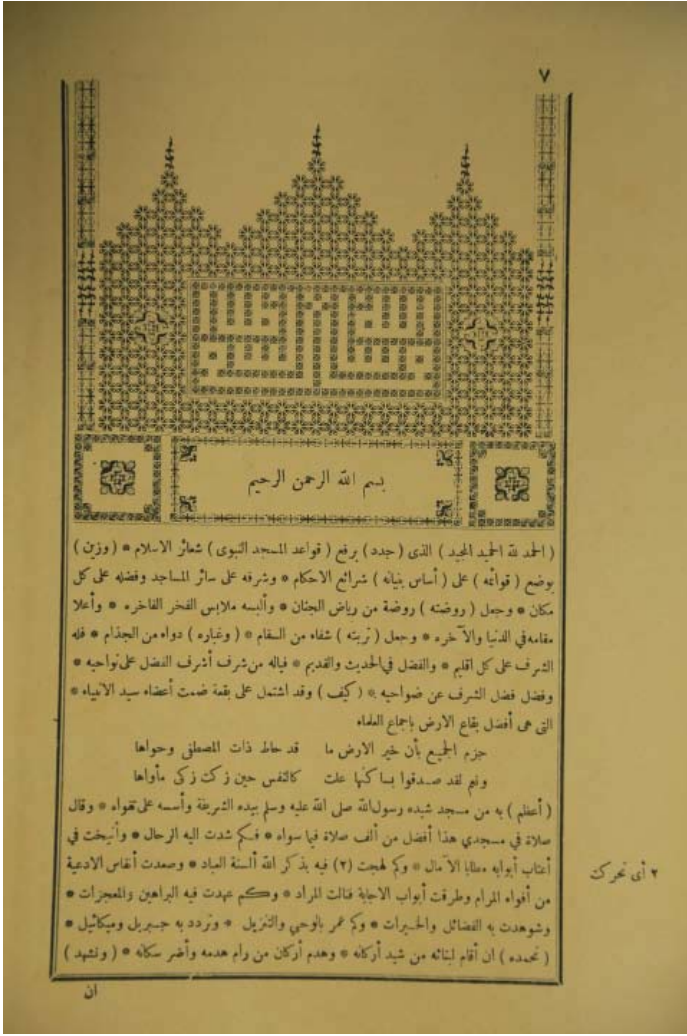 ٧
بسم الله الرحمن الرحيم
( الحمد لله الحميد المجيد ) الذى ( جدد ) برفع ( قواعد المسجد النبوى ) شعائر الاسلام * ( وزين )
بوضع ( قوائمه ) على ( أساس بنيانه ) شرائع الاحكام * وشرفه على سائر المساجد وفضله على كل
مكان * وجعل ( روضته ) روضة من رياض الجنان * وألبسه ملابس الفخر الفاخره * وأعلا
مقامه فى الدنيا والآخره * وجعل ( تربته ) شفاه من السقام * ( وغباره ) دواه من الجذام * فله
الشرف على كل اقليم * والفضل فى الحديث والقديم * فياله من شرف أشرف الفضل على نواحيه *
وفضل فضل الشرف عن ضواحيه * ( كيف ) وقد اشتمل على بقعة ضمت أعضاء سيد الانبياء *
التى هى أفضل بقاع الارض باجماع العلماء
جزم الجميع بأن خير الارض ما قد حاط ذات المصطفى وحواها
ونعم لقد صدقوا بساكنها علت كالنفس حين زكت زكى مأواها
( أعظم ) به من مسجد شيده رسول الله صلى الله عليه وسلم بيده الشريفة وأسسه على تقواه * وقال
صلاة في مسجدي هذا أفضل من ألف صلاة فيما سواه * فكم شدت اليه الرحال * وأنيخت في
أعتاب أبوابه مطايا الآمال * وكم لهجت (٢) فيه بذكر الله ألسنة العباد * وصعدت أنفاس الادعية
من أفواه المرام وطرقت أبواب الاجابة فنالت المراد * وكم عهدت فيه البراهين والمعجزات *
وشوهدت به الفضائل والخيرات * وكم عمر بالوحي والتنزيل * وتردد به جبريل وميكائيل *
( نحمده ) ان أقام لبنائه من شيد أركانه * وهدم أركان من رام هدمه وأضر سكانه * ( ونشهد )
٢ أى تحركت
ان